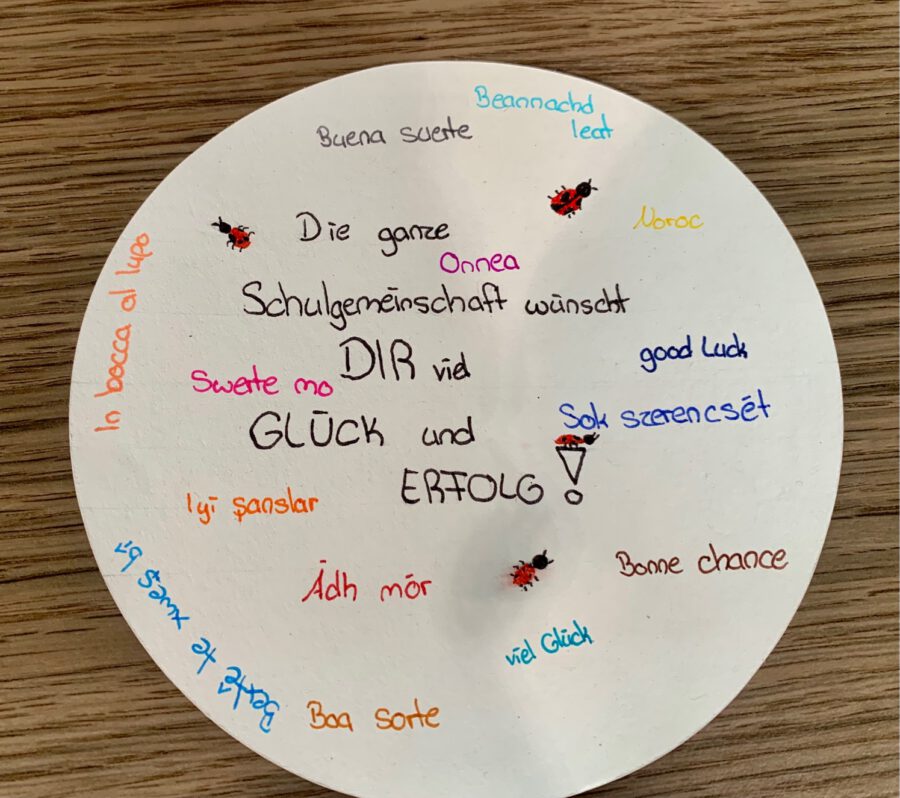 Beannachd
leat
Buena suerte
Noroc
In bocca al lupo
Die ganze
Onnea
Schulgemeinschaft wünscht
DIR viel
good Luck
Swerte mo
GLÜCK und
Sok szerencsét
ERFOLG!
Iyi şanslar
Ádh mór
Bonne chance
viel Glück
Boa sorte